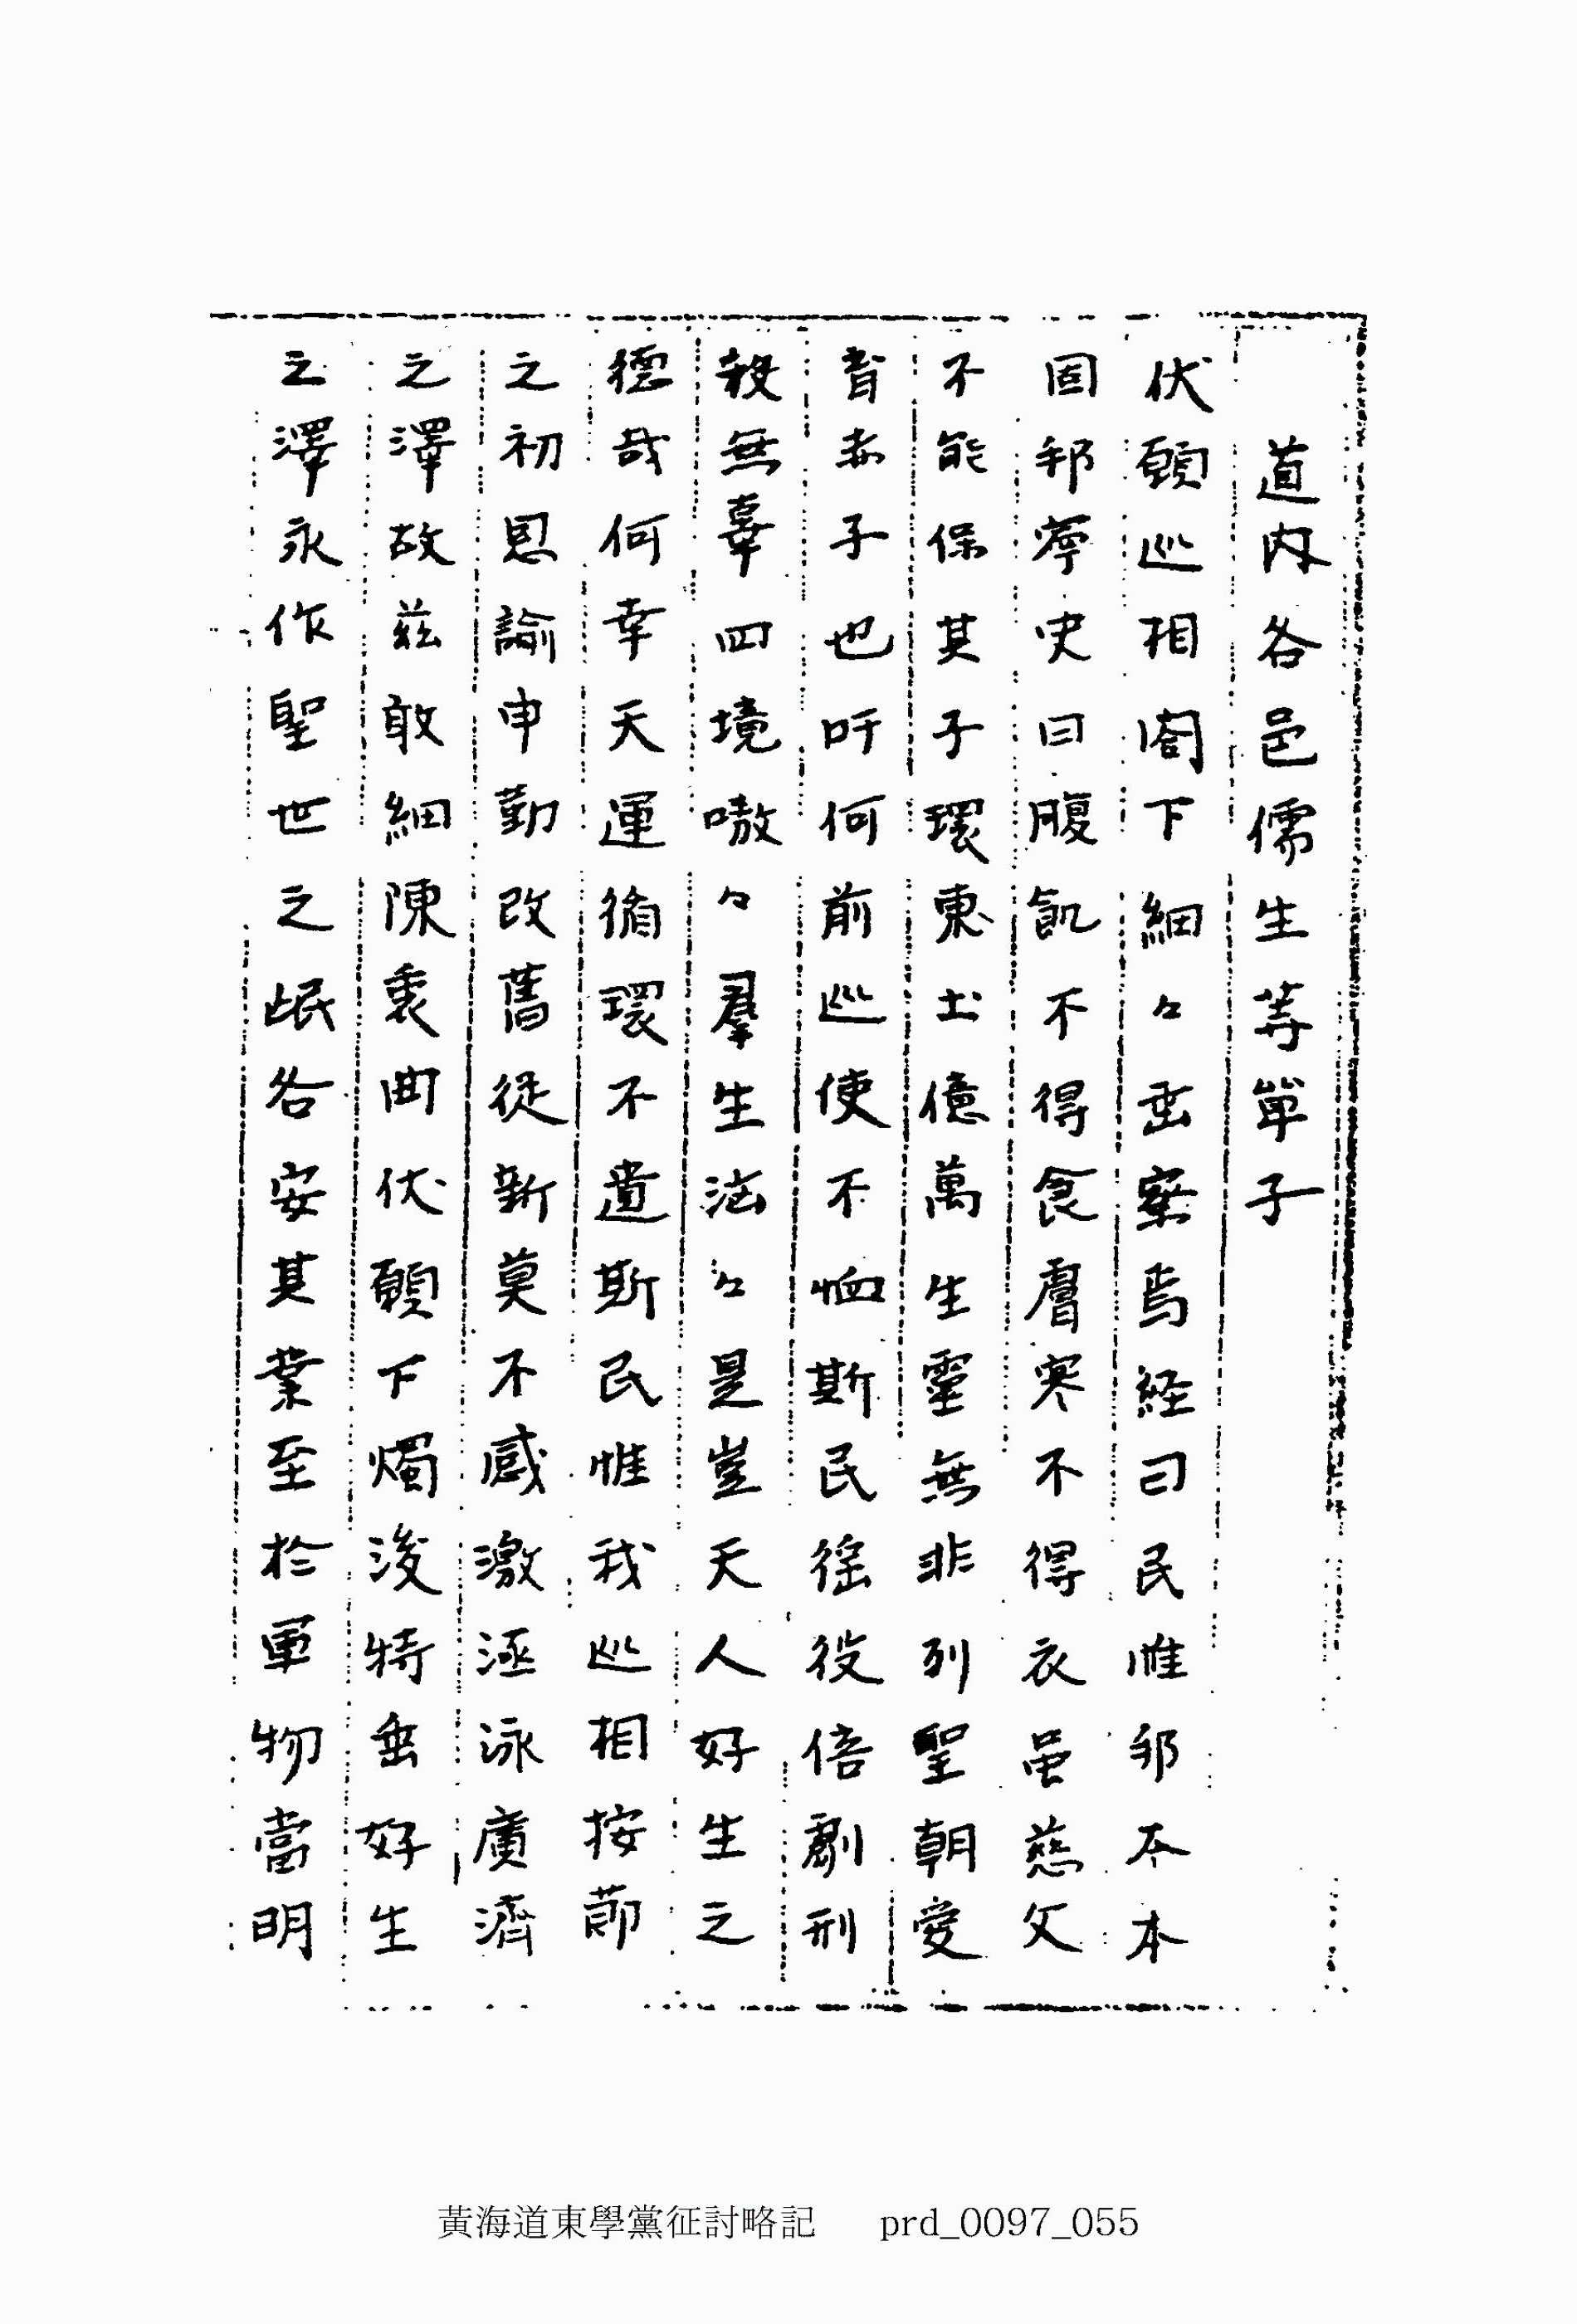 道内各邑儒生等單子
伏願巡相閤下細々垂察焉経曰民惟邦本本
固邦寧史曰腹飢不得食膚寒不得衣虽慈父
不能保其子環東土億萬生靈無非列聖朝愛
育赤子也吁何前巡使不恤斯民徭役倍劇刑
殺無辜四境嗷々羣生㳒々是豈天人好生之
德哉何幸天運循環不遺斯民惟我巡相按節
之初恩諭申勤改舊從新莫不感激涵泳廣濟
之澤故兹敢細陳衷曲伏願下燭後特垂好生
之澤永作聖世之氓各安其業至於軍物當明
黃海道東學黨征討略記 prd_0097_055